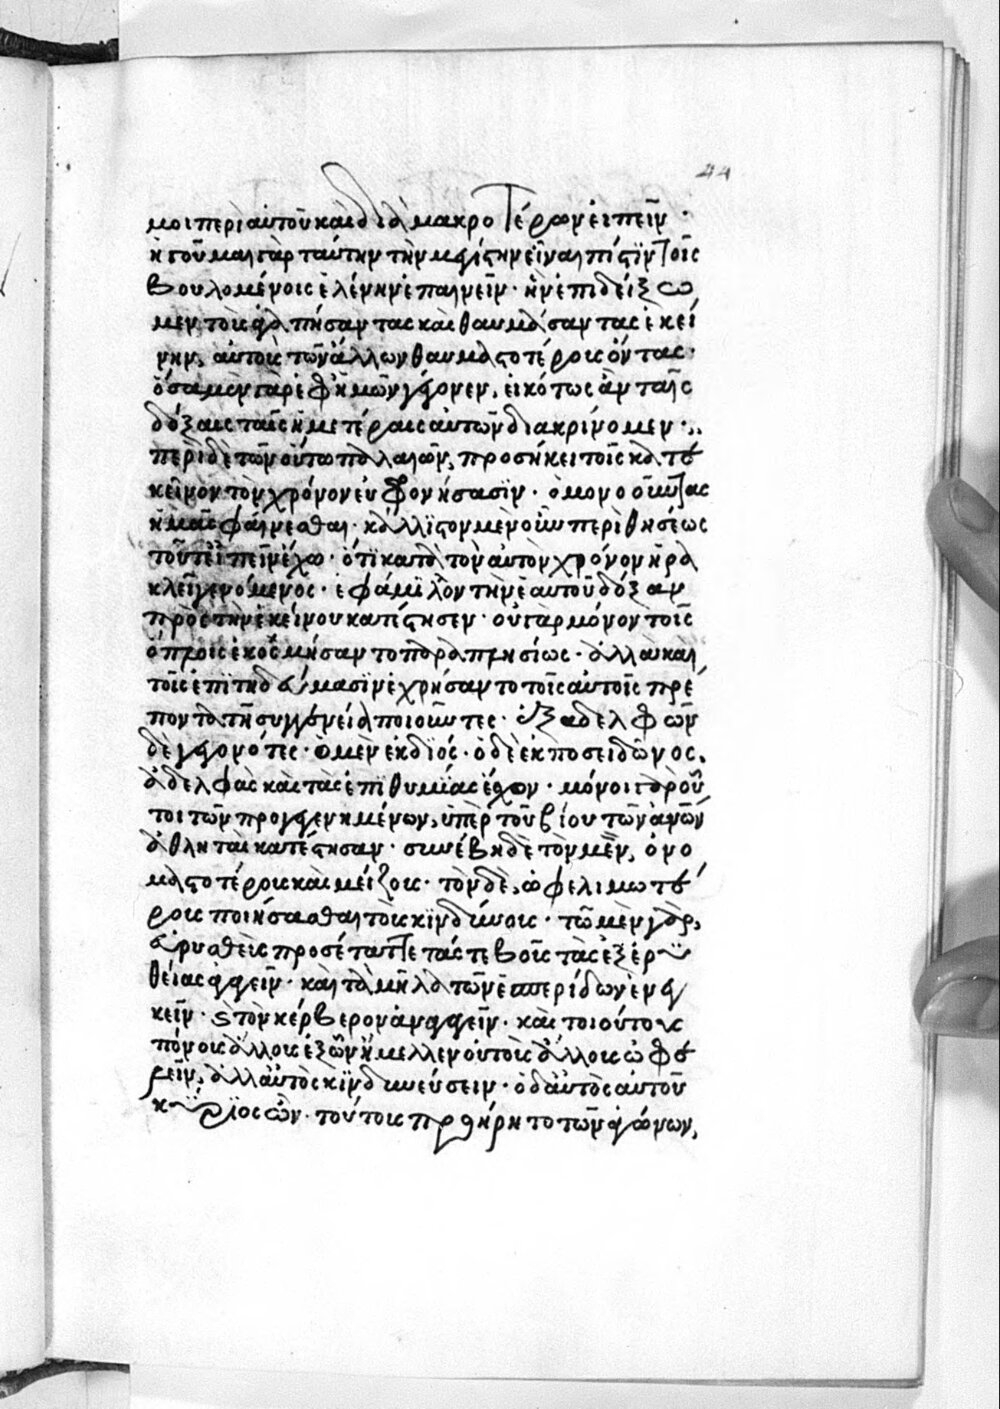 44
μοι περὶ αὐτοῦ καὶ διὰ μακροτέρων εἰπεῖν ·
ἡγοῦμαι γὰρ ταύτην τὴν μεγίστην εἶναι πίστϊν τοῖς
βουλομένοις ἑλένην ἐπαινεῖν · ἢν ἐπιδείξω
μεν τοὺς ἀγαπήσαντας καὶ θαυμάσαντας ἐκεί
νην, αὐτοὺς τῶν ἄλλων θαυμαστοτέρους ὄντας ·
ὅσα μὲν γὰρ ἐφ ἡμῶν γέγονεν, εἰκότως ἂν ταῖς
δόξαις ταῖς ἡμετέραις αὐτῶν διακρίνομεν ·
περὶ δὲ τῶν οὕτω παλαιῶν, προσήκει τοῖς κατ
κεῖνον τὸν χρόνον εὖ φρονήσασϊν · ὁμονοοῦντας
ἡμᾶς φαίνεσθαι · κάλλϊστον μὲν οὖν περὶ θησέως
τοῦτ εἰπεῖν ἔχω · ὅτϊ κατὰ τὸν αὐτὸν χρόνον ἡρα
κλεῖ γενόμενος · ἐφάμϊλλον τὴν ἑαυτοῦ δόξαν
πρὸς τὴν ἐκείνου κατέστησεν · οὐ γὰρ μόνον τοῖς
ὅπλοις ἐκοσμήσαντο παραπλησίως · ἀλλὰ καὶ
τοῖς ἐπϊτηδεύμασϊν ἐχρήσαντο τοῖς αὐτοῖς πρέ
ποντα τῆ συγγενεία ποιοῦντες · ἐξ ἀδελφῶν
δὲ γεγονότες · ὁ μὲν ἐκ διός · ὁ δὲ ἐκ ποσειδῶνος,
ἀδελφὰς καὶ τὰς ἐπϊθυμϊας ἔσχον · μόνοι γὰρ οὗ
τοι τῶν προγεγενημένων, ὑπὲρ τοῦ βίου τῶν ἀν̅ω̅ν
ἀθληταὶ κατέστησαν · συνέβη δὲ τὸν μὲν, ὀνο
μαστοτέρους καὶ μείζους · τὸν δὲ, ὠφελιμωτέ
ρους ποιήσασθαι τοὺς κϊνδύνους · τῶ μὲν γὰρ,
εὐρυσθεὺς προσέταττε τάς τε βοῦς τὰς ἐξ ἐρυ
θείας ἀγαγεῖν · καὶ τὰ μῆλα τῶν ἑσπερίδων ἐνεγ
κεῖν · ϗ τὸν κέρβερον ἀναγαγεῖν · καὶ τοιούτους
πόνους ἄλλους ἐξ ὧν ἤμελλεν οὐ τοὺς ἄλλους ὠφε
λεῖν, ἀλλ αὐτὸς κϊνδυνεύσειν · ὁ δ αὐτὸς αὑτοῦ
κύρϊος ὢν · τούτους προηρεῖτο τῶν ἀγώνων,